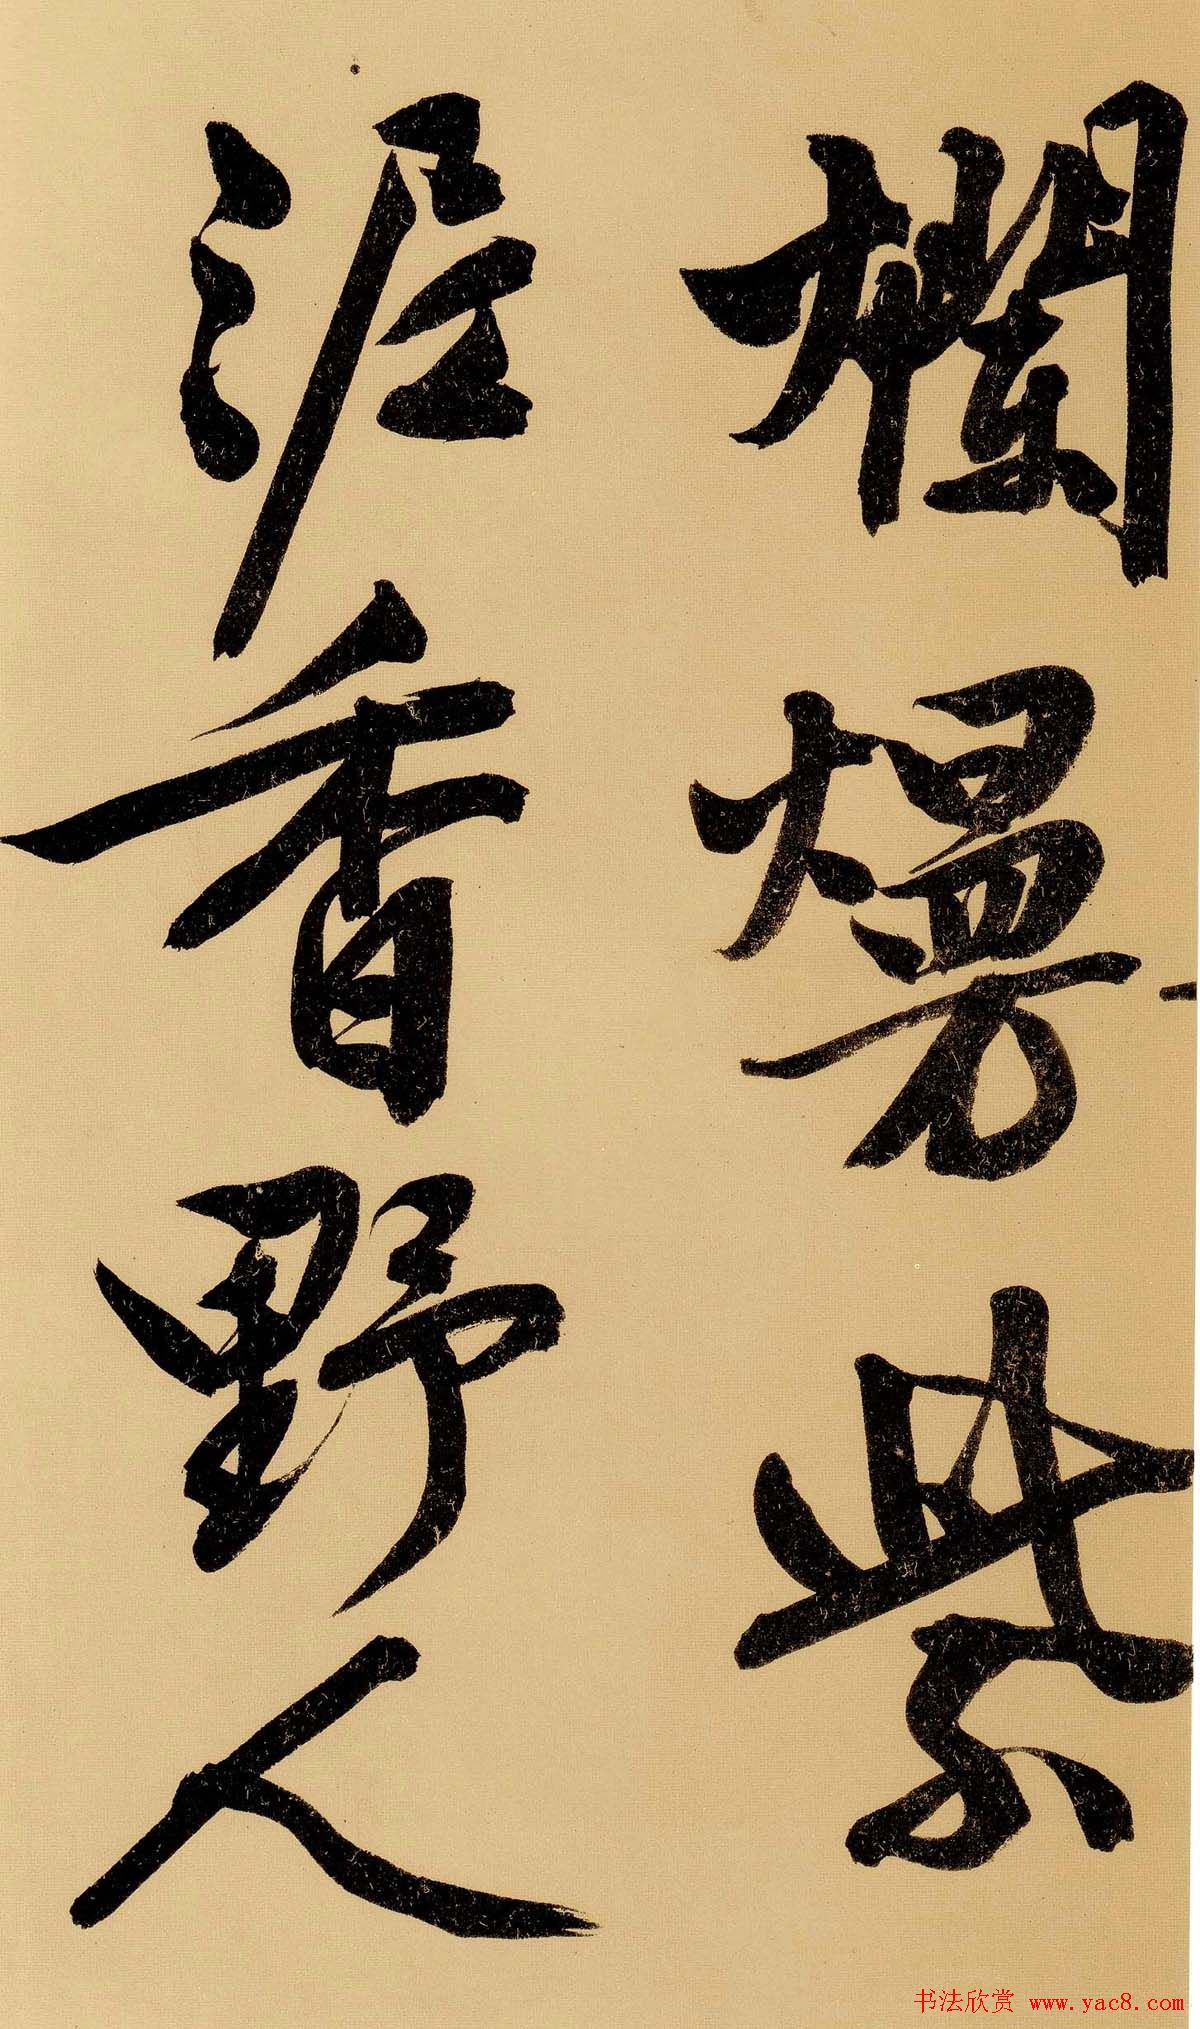 欄熳紫
泥香野人
书法欣赏 www.yac8.com